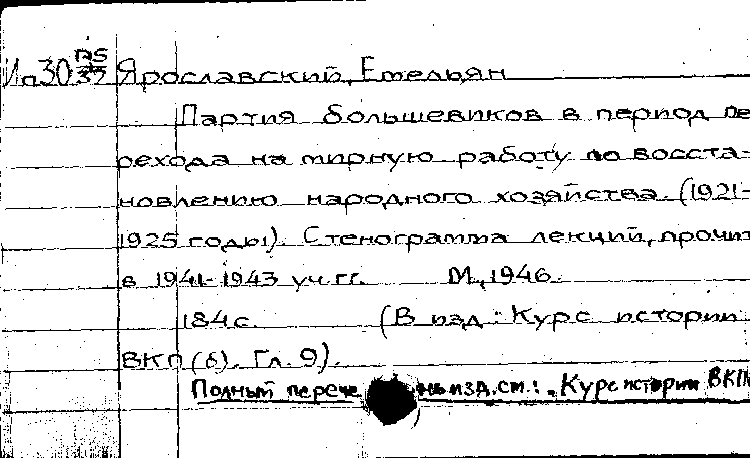 Ярославский, Емельян
Партия большевиков в период пе
рехода на мирную работу по восста-
новлению народного хозяйства. (1921-
1925 годы). Стенограмма лекций, прочит
в 1941-1943 уч. гг. М., 1946.
184 с. (В изд.: Курс истории
ВКП(б). Гл. 9).
Полный перече нь изд. см.: Курс истории ВКП